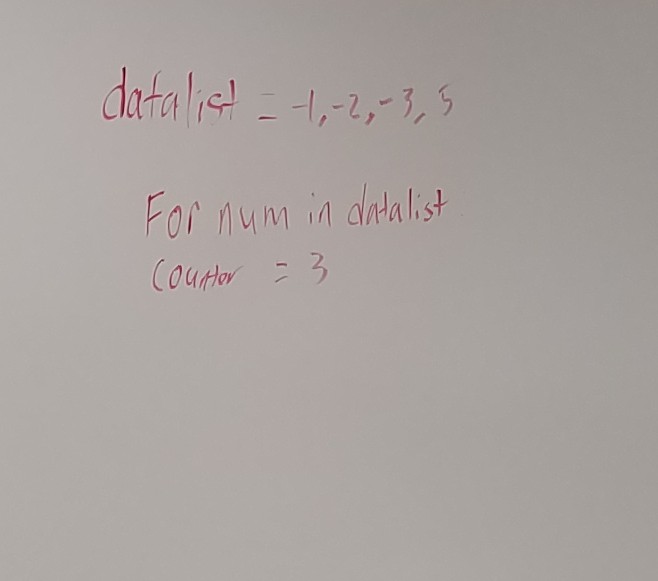 datalist = -1, -2, -3, 5
For num in datalist
Counter = 3